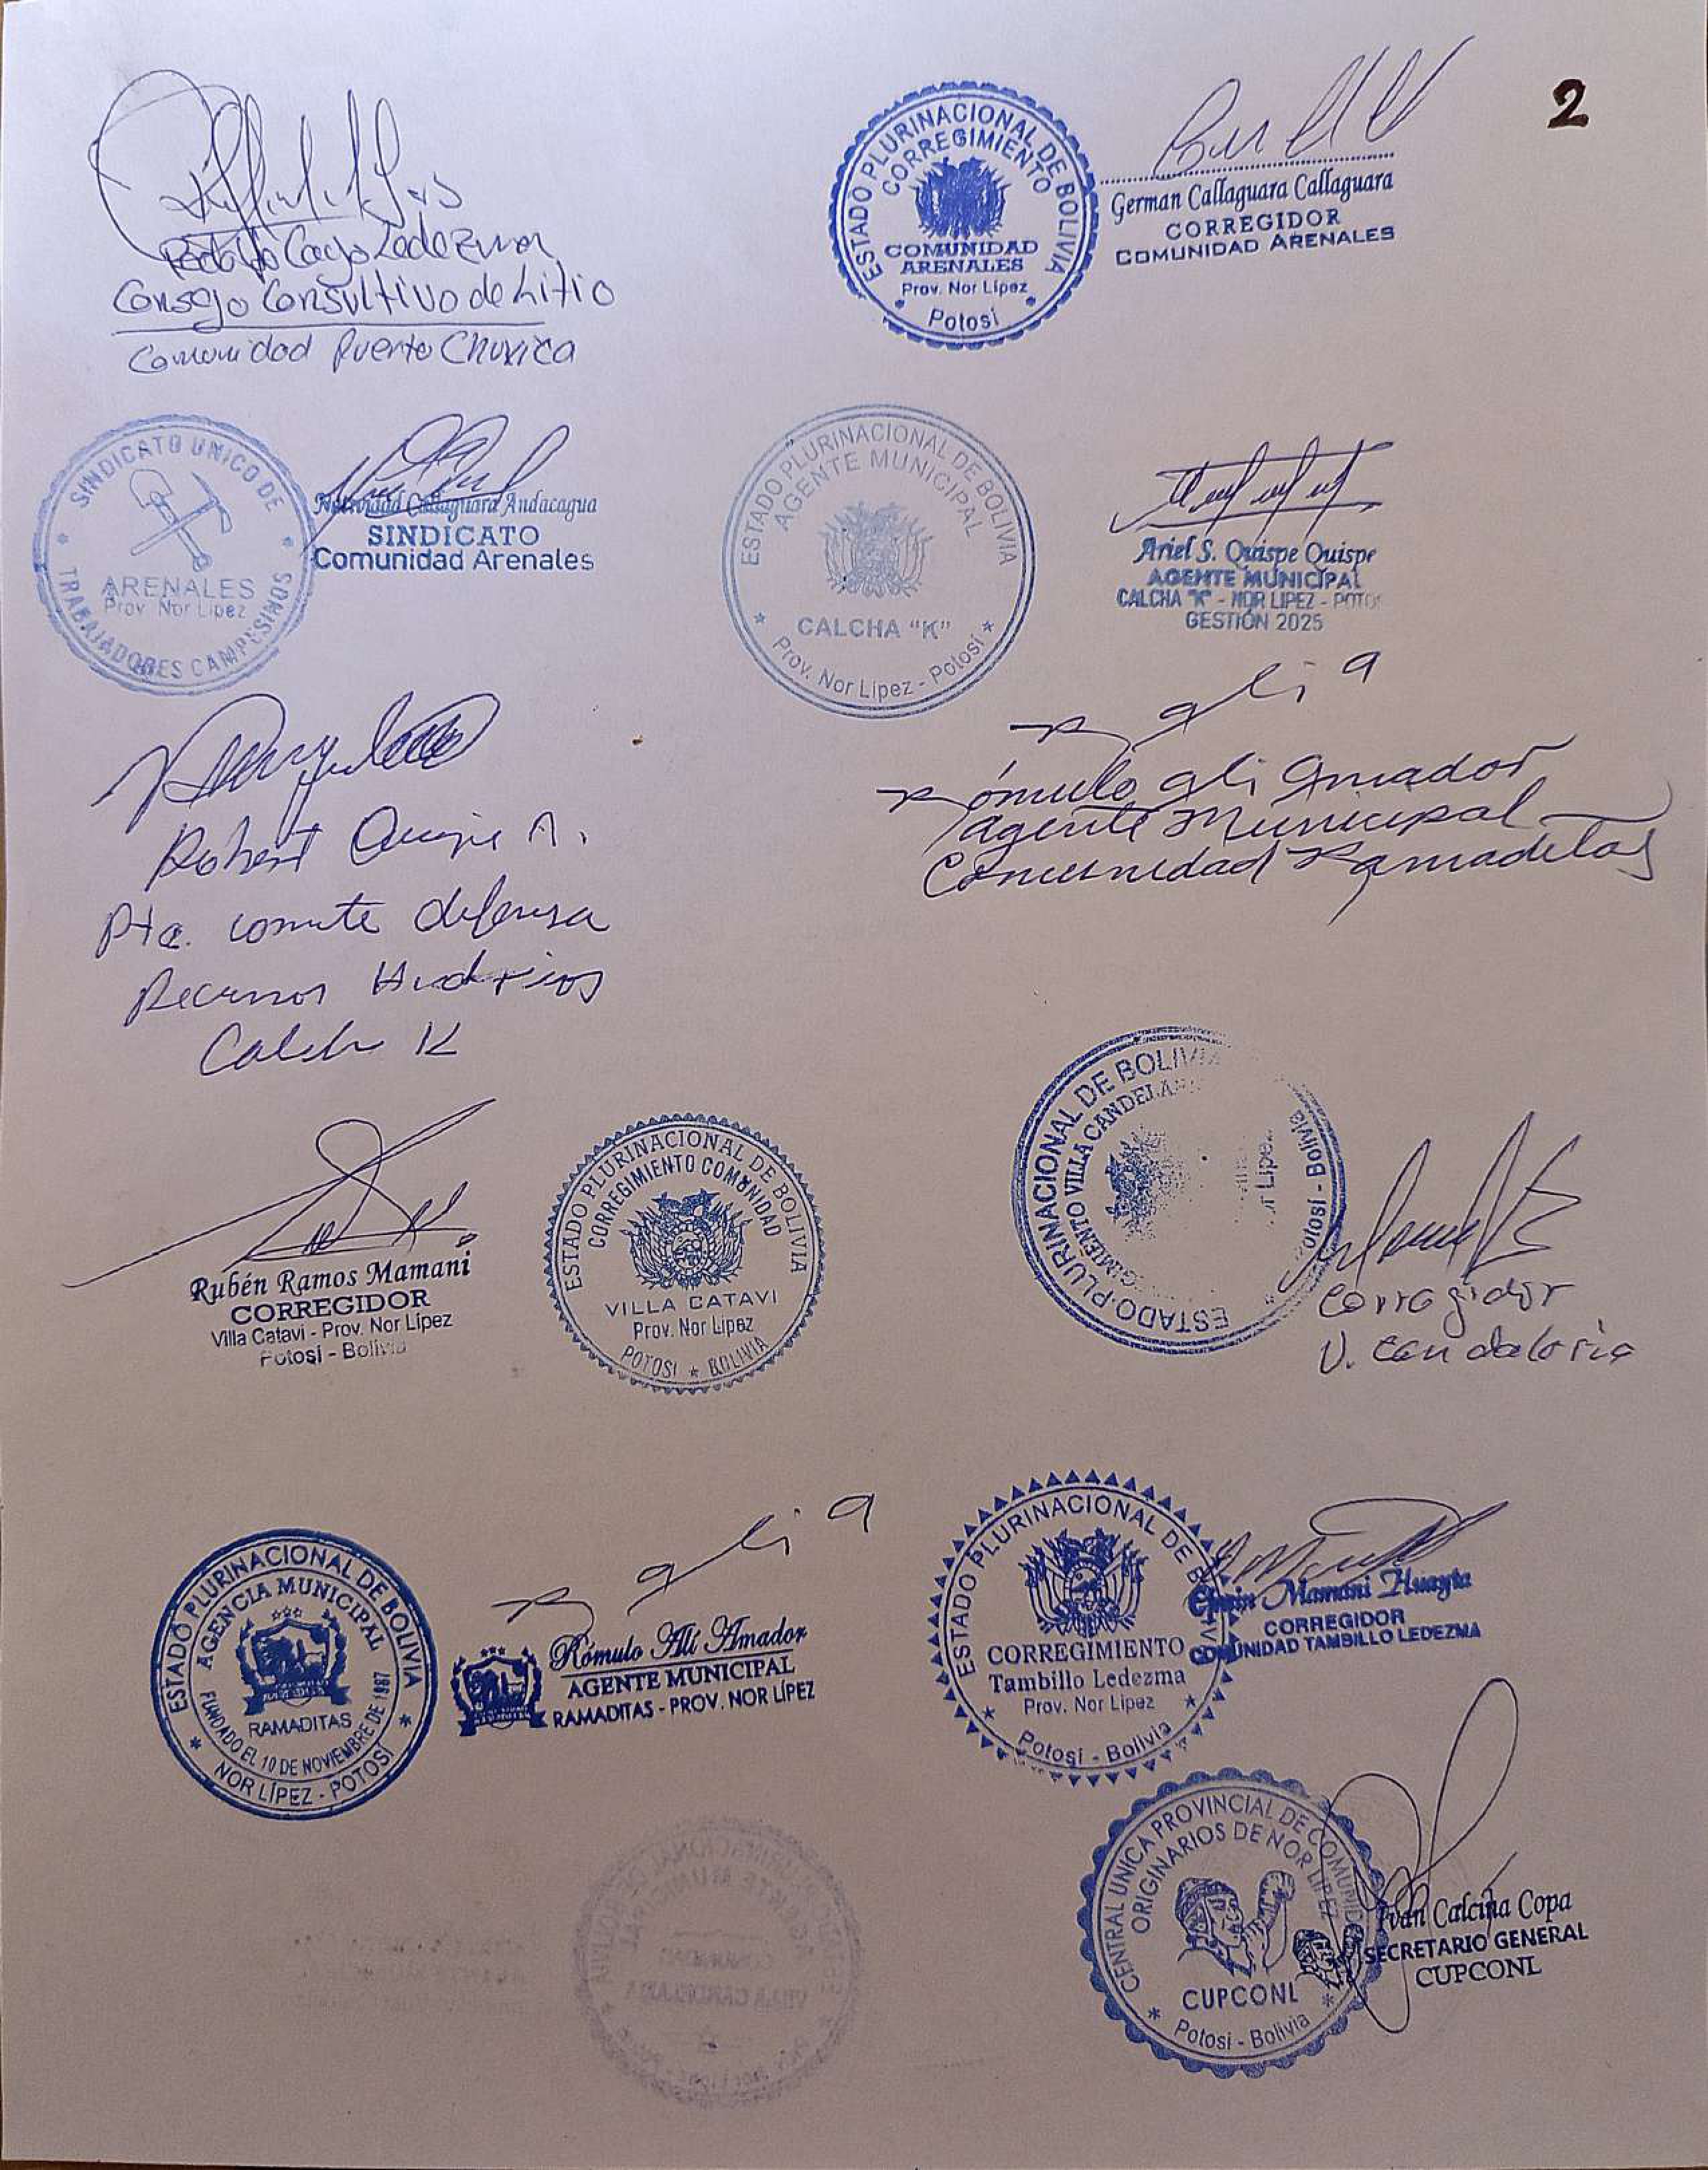 2
Cayo Ledezma
Consejo Consultivo de Litio
Comunidad Puerto Chuvica
ESTADO PLURINACIONAL DE BOLIVIA
CORREGIMIENTO
COMUNIDAD
ARENALES
Prov. Nor Lípez
Potosí
German Callaguara Callaguara
CORREGIDOR
COMUNIDAD ARENALES
SINDICATO UNICO DE
TRABAJADORES CAMPESINOS
ARENALES
Prov Nor Lipez
Callaguara Andacagua
SINDICATO
Comunidad Arenales
ESTADO PLURINACIONAL DE BOLIVIA
AGENTE MUNICIPAL
CALCHA "K"
Prov. Nor Lipez - Potosí
Ariel S. Quispe Quispe
AGENTE MUNICIPAL
CALCHA "K" - NOR LIPEZ - POTO
GESTIÓN 2025
Robert
Pte. comite defensa
Recursos Hidricos
Calcha K
R Ali A
Rómulo Ali Amador
Agente Municipal
Comunidad Ramaditas
Rubén Ramos Mamani
CORREGIDOR
Villa Catavi - Prov. Nor Lípez
Potosí - Bolivia
ESTADO PLURINACIONAL DE BOLIVIA
CORREGIMIENTO COMUNIDAD
VILLA CATAVI
Prov. Nor Lipez
POTOSI * BOLIVIA
ESTADO PLURINACIONAL DE BOLIVIA
GIMIENTO VILLA CANDELA
r Lipe
otosí - Bolivia
Corregidor
V. Candelaria
ESTADO PLURINACIONAL DE BOLIVIA
AGENCIA MUNICIPAL
RAMADITAS
FUNDADO EL 10 DE NOVIEMBRE DE 1987
NOR LÍPEZ - POTOSÍ
R Ali A
Rómulo Alí Amador
AGENTE MUNICIPAL
RAMADITAS - PROV. NOR LÍPEZ
ESTADO PLURINACIONAL DE B VIA
CORREGIMIENTO
Tambillo Ledezma
Prov. Nor Lipez
Potosí - Bolivia
Mamani Huayta
CORREGIDOR
COMUNIDAD TAMBILLO LEDEZMA
CENTRAL UNICA PROVINCIAL DE COMUNID
ORIGINARIOS DE NOR LIPEZ
CUPCONL
Potosi - Bolivia
Ivan Calcina Copa
SECRETARIO GENERAL
CUPCONL